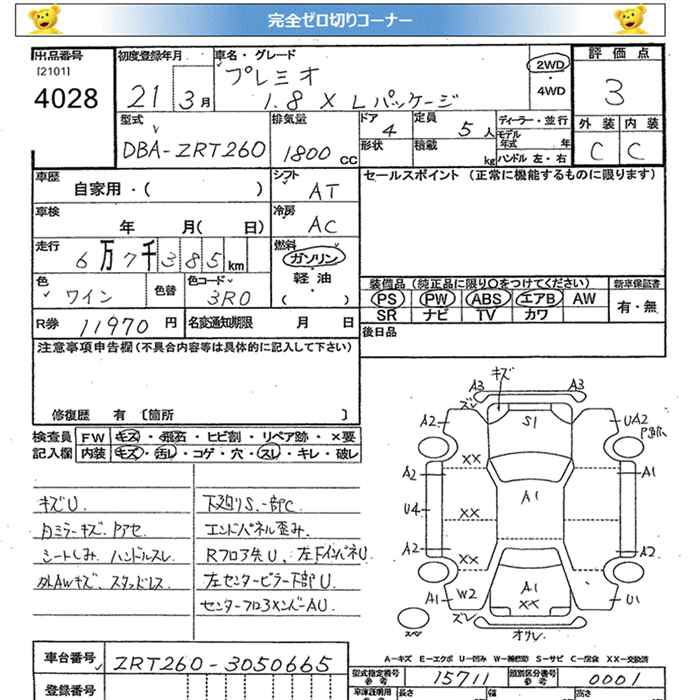 完全ゼロ切りコーナー
出品番号 初度登録年月 車名・グレード 評価点
[2101]
4028 21 3月 プレミオ 2WD 3
1.8 X Lパッケージ ・4WD
型式 排気量 ドア 定員 ディーラー・並行 外装 内装
DBA-ZRT260 1800cc 4 5人 モデル年式 年 C C
形状 積載 kg ハンドル 左・右
車歴 シフト セールスポイント (正常に機能するものに限ります)
自家用・( ) AT
車検 冷房
年 月( 日) AC
走行 燃料
6万7千385km ガソリン
軽油
( )
色 色替 色コード 装備品(純正品に限り○をつけてください) 新車保証書
ワイン 3R0 PS PW ABS エアB AW 有・無
SR ナビ TV カワ
R券 11970円 名変通知期限 月 日 後日品
注意事項申告欄(不具合内容等は具体的に記入して下さい)
修復歴 有 [箇所 ]
検査員 FW キズ・飛石・ヒビ割・リペア跡・×要
記入欄 内装 キズ・汚レ・コゲ・穴・スレ・キレ・破レ
キズU. 下廻りS.一部C
内ミラーキズ. Pアセ エンドパネル歪み.
シートしみ. ハンドルスレ. Rフロア先U、左下インパネU
外AWキズ. スタッドレス. 左センターピラー下部U.
センターフロアメンバーAU.
キズ
A3 A3
ズレ
A2 S1 UA2
P部
XX
A2 A1 A1
U4
XX
A2 A2
XX
A1 W2 A1 XX U1
ズレ オサレ
スペア
A-キズ E-エクボ U-凹み W-補修跡 S-サビ C-腐食 XX-交換済
車台番号 ZRT260-3050665 型式指定番号 参考 15711 類別区分番号 参考 0001
登録番号 車庫証明用 参考 長さ 幅 高さ